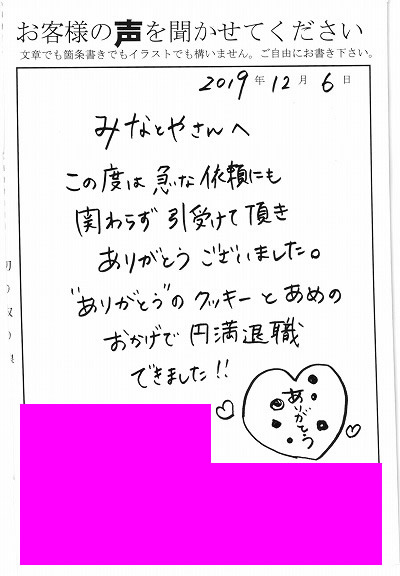 お客様の声を聞かせてください
文章でも箇条書きでもイラストでも構いません。ご自由にお書き下さい。
2019年12月6日
みなとやさんへ
この度は急な依頼にも
関わらず引受けて頂き
ありがとうございました。
"ありがとう"のクッキーとあめの
おかげで円満退職
できました!!
ありがとう